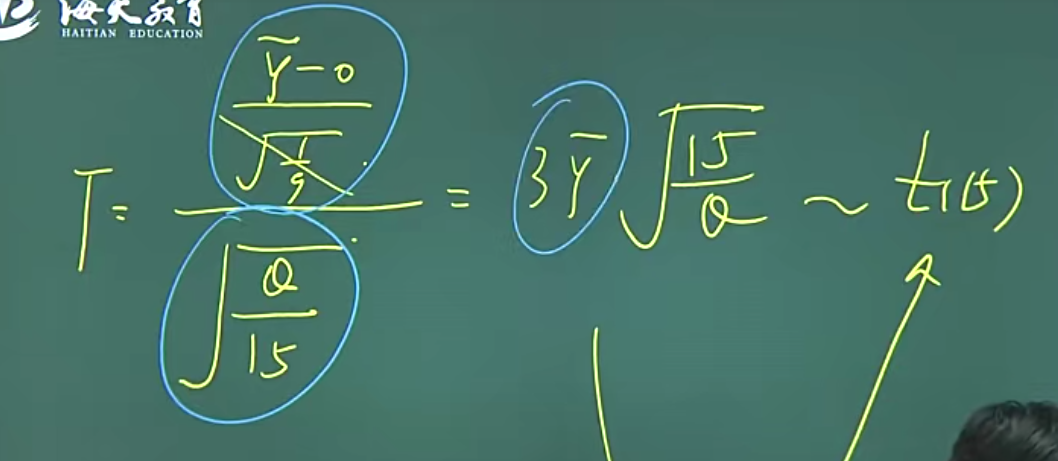 海天教育
HAITIAN EDUCATION
T = \frac{\frac{\overline{y}-0}{\sqrt{\frac{1}{9}}}}{\sqrt{\frac{Q}{15}}} = 3\overline{Y}\sqrt{\frac{15}{Q}} \sim t(15)